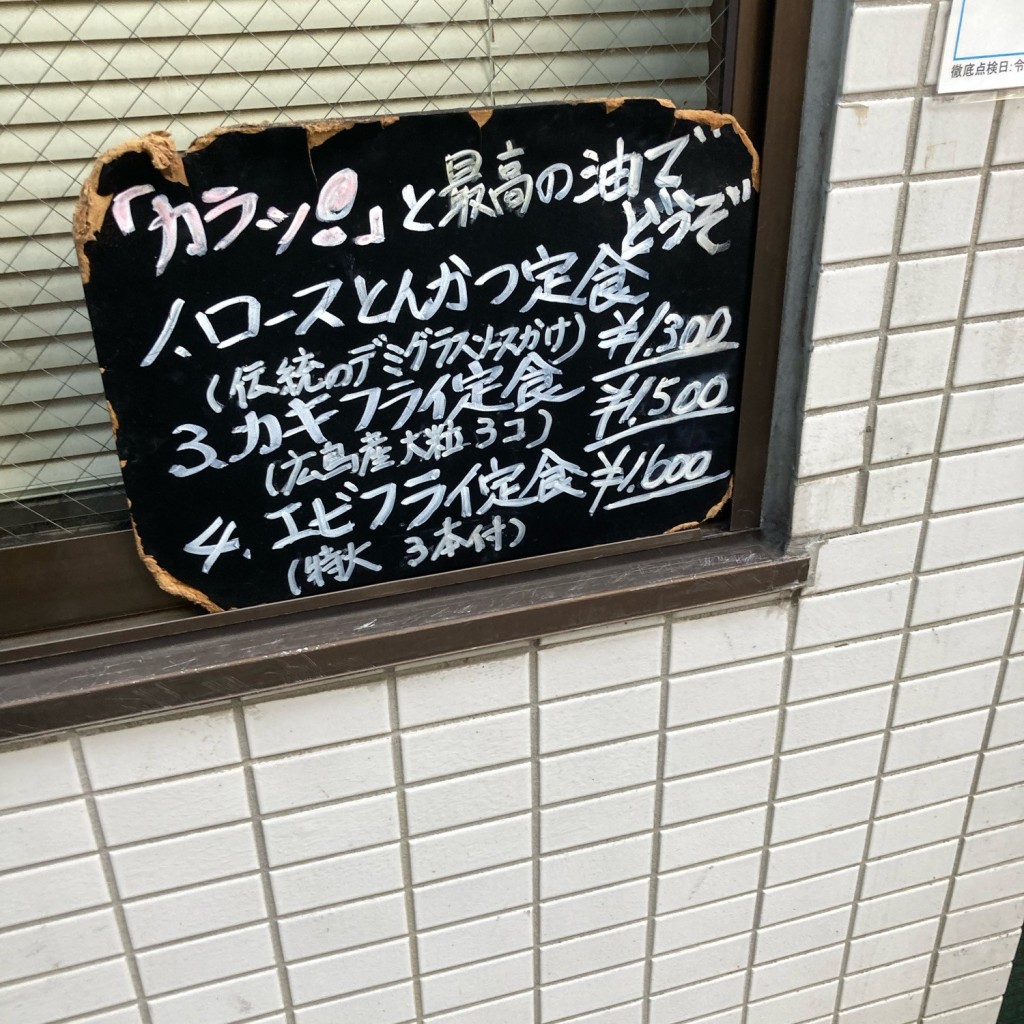 「カラッ!」と最高の油で
どうぞ
1.ロースとんかつ定食
(伝統のデミグラスソースかけ) ¥1.300
3.カキフライ定食
(広島産大粒3コ) ¥1.500
4.エビフライ定食 ¥1.600
(特大 3本付)
徹底点検日:令